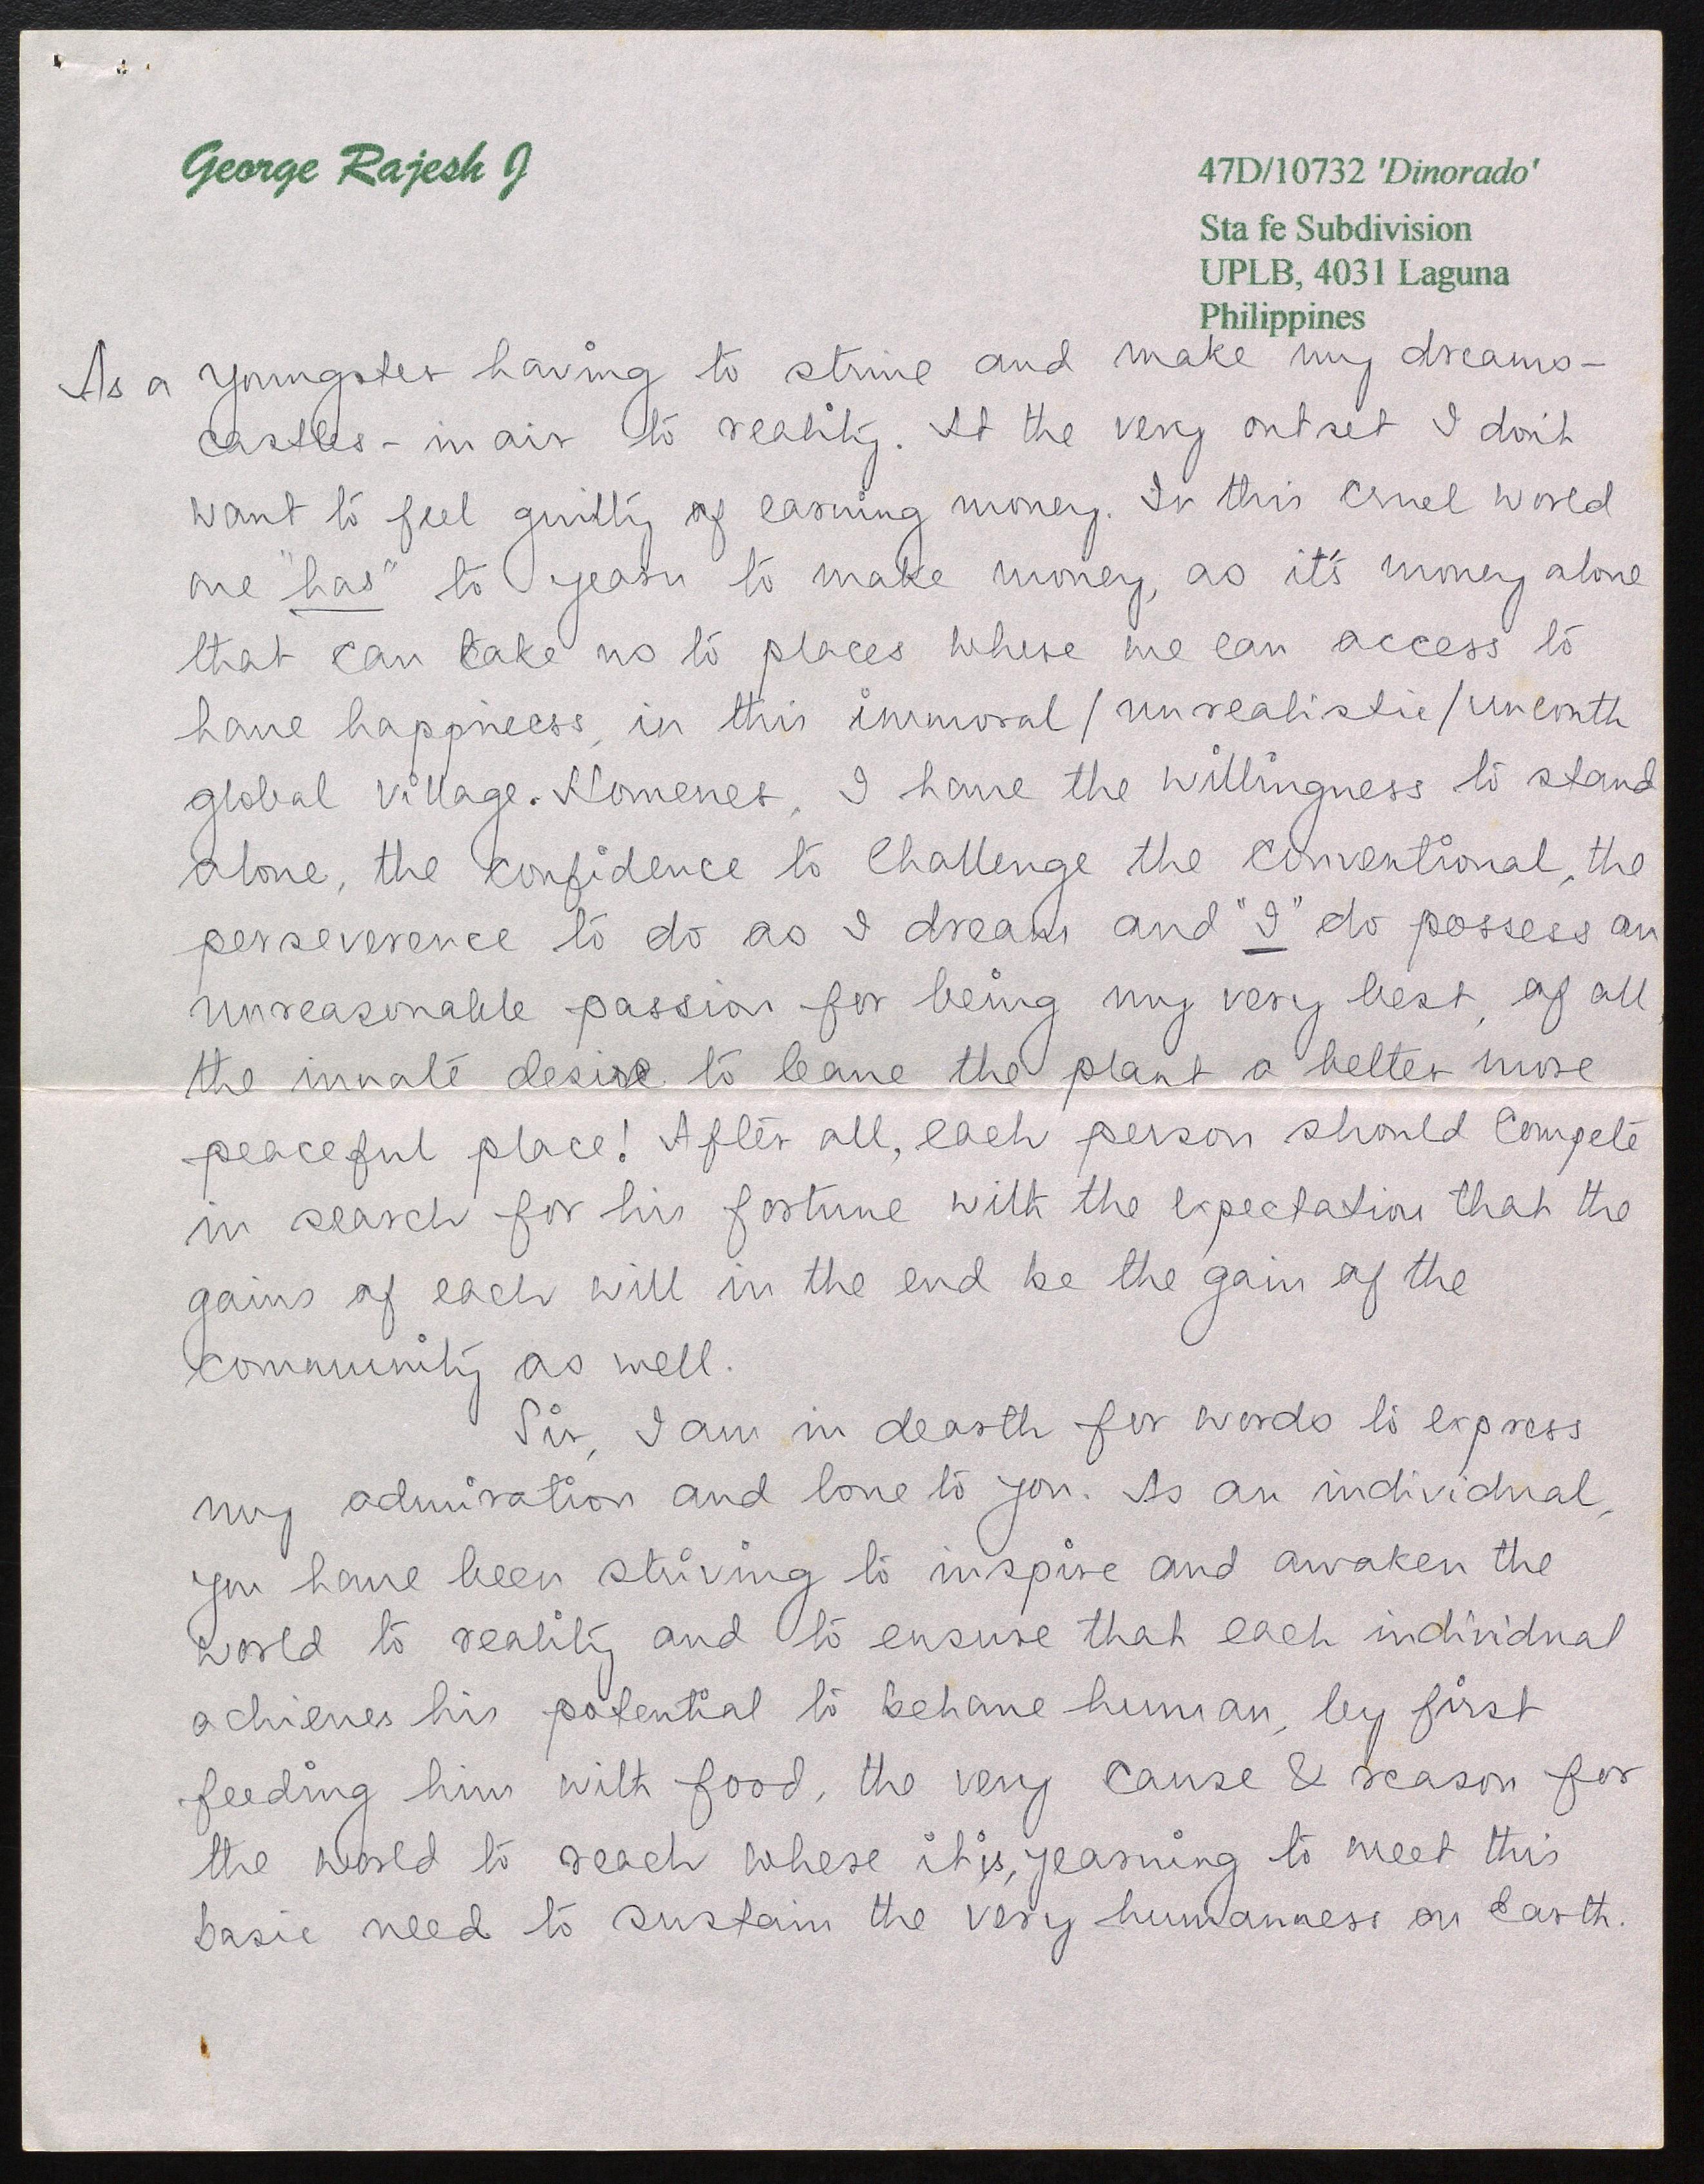 George Rajesh J
47D/10732 'Dinorado'
Sta fe Subdivision
UPLB, 4031 Laguna
Philippines
As a youngster having to strive and make my dreams-
castles-in air to reality. At the very outset I don't
want to feel guilty of earning money. In this cruel world
one "has" to yearn to make money, as it's money alone
that can take us to places where we can access to
have happiness, in this immoral/unrealistic/uncouth
global village. However, I have the willingness to stand
alone, the confidence to challenge the conventional, the
perseverence to do as I dream and "I" do possess an
unreasonable passion for being my very best, of all,
the innate desire to leave the plant a better more
peaceful place! After all, each person should compete
in search for his fortune with the expectation that the
gains of each will in the end be the gain of the
community as well.
Sir, I am in dearth for words to express
my admiration and love to you. As an individual,
you have been striving to inspire and awaken the
world to reality and to ensure that each individual
achieves his potential to behave human, by first
feeding him with food, the very cause & reason for
the world to reach where it is, yearning to meet this
basic need to sustain the very humanness on Earth.